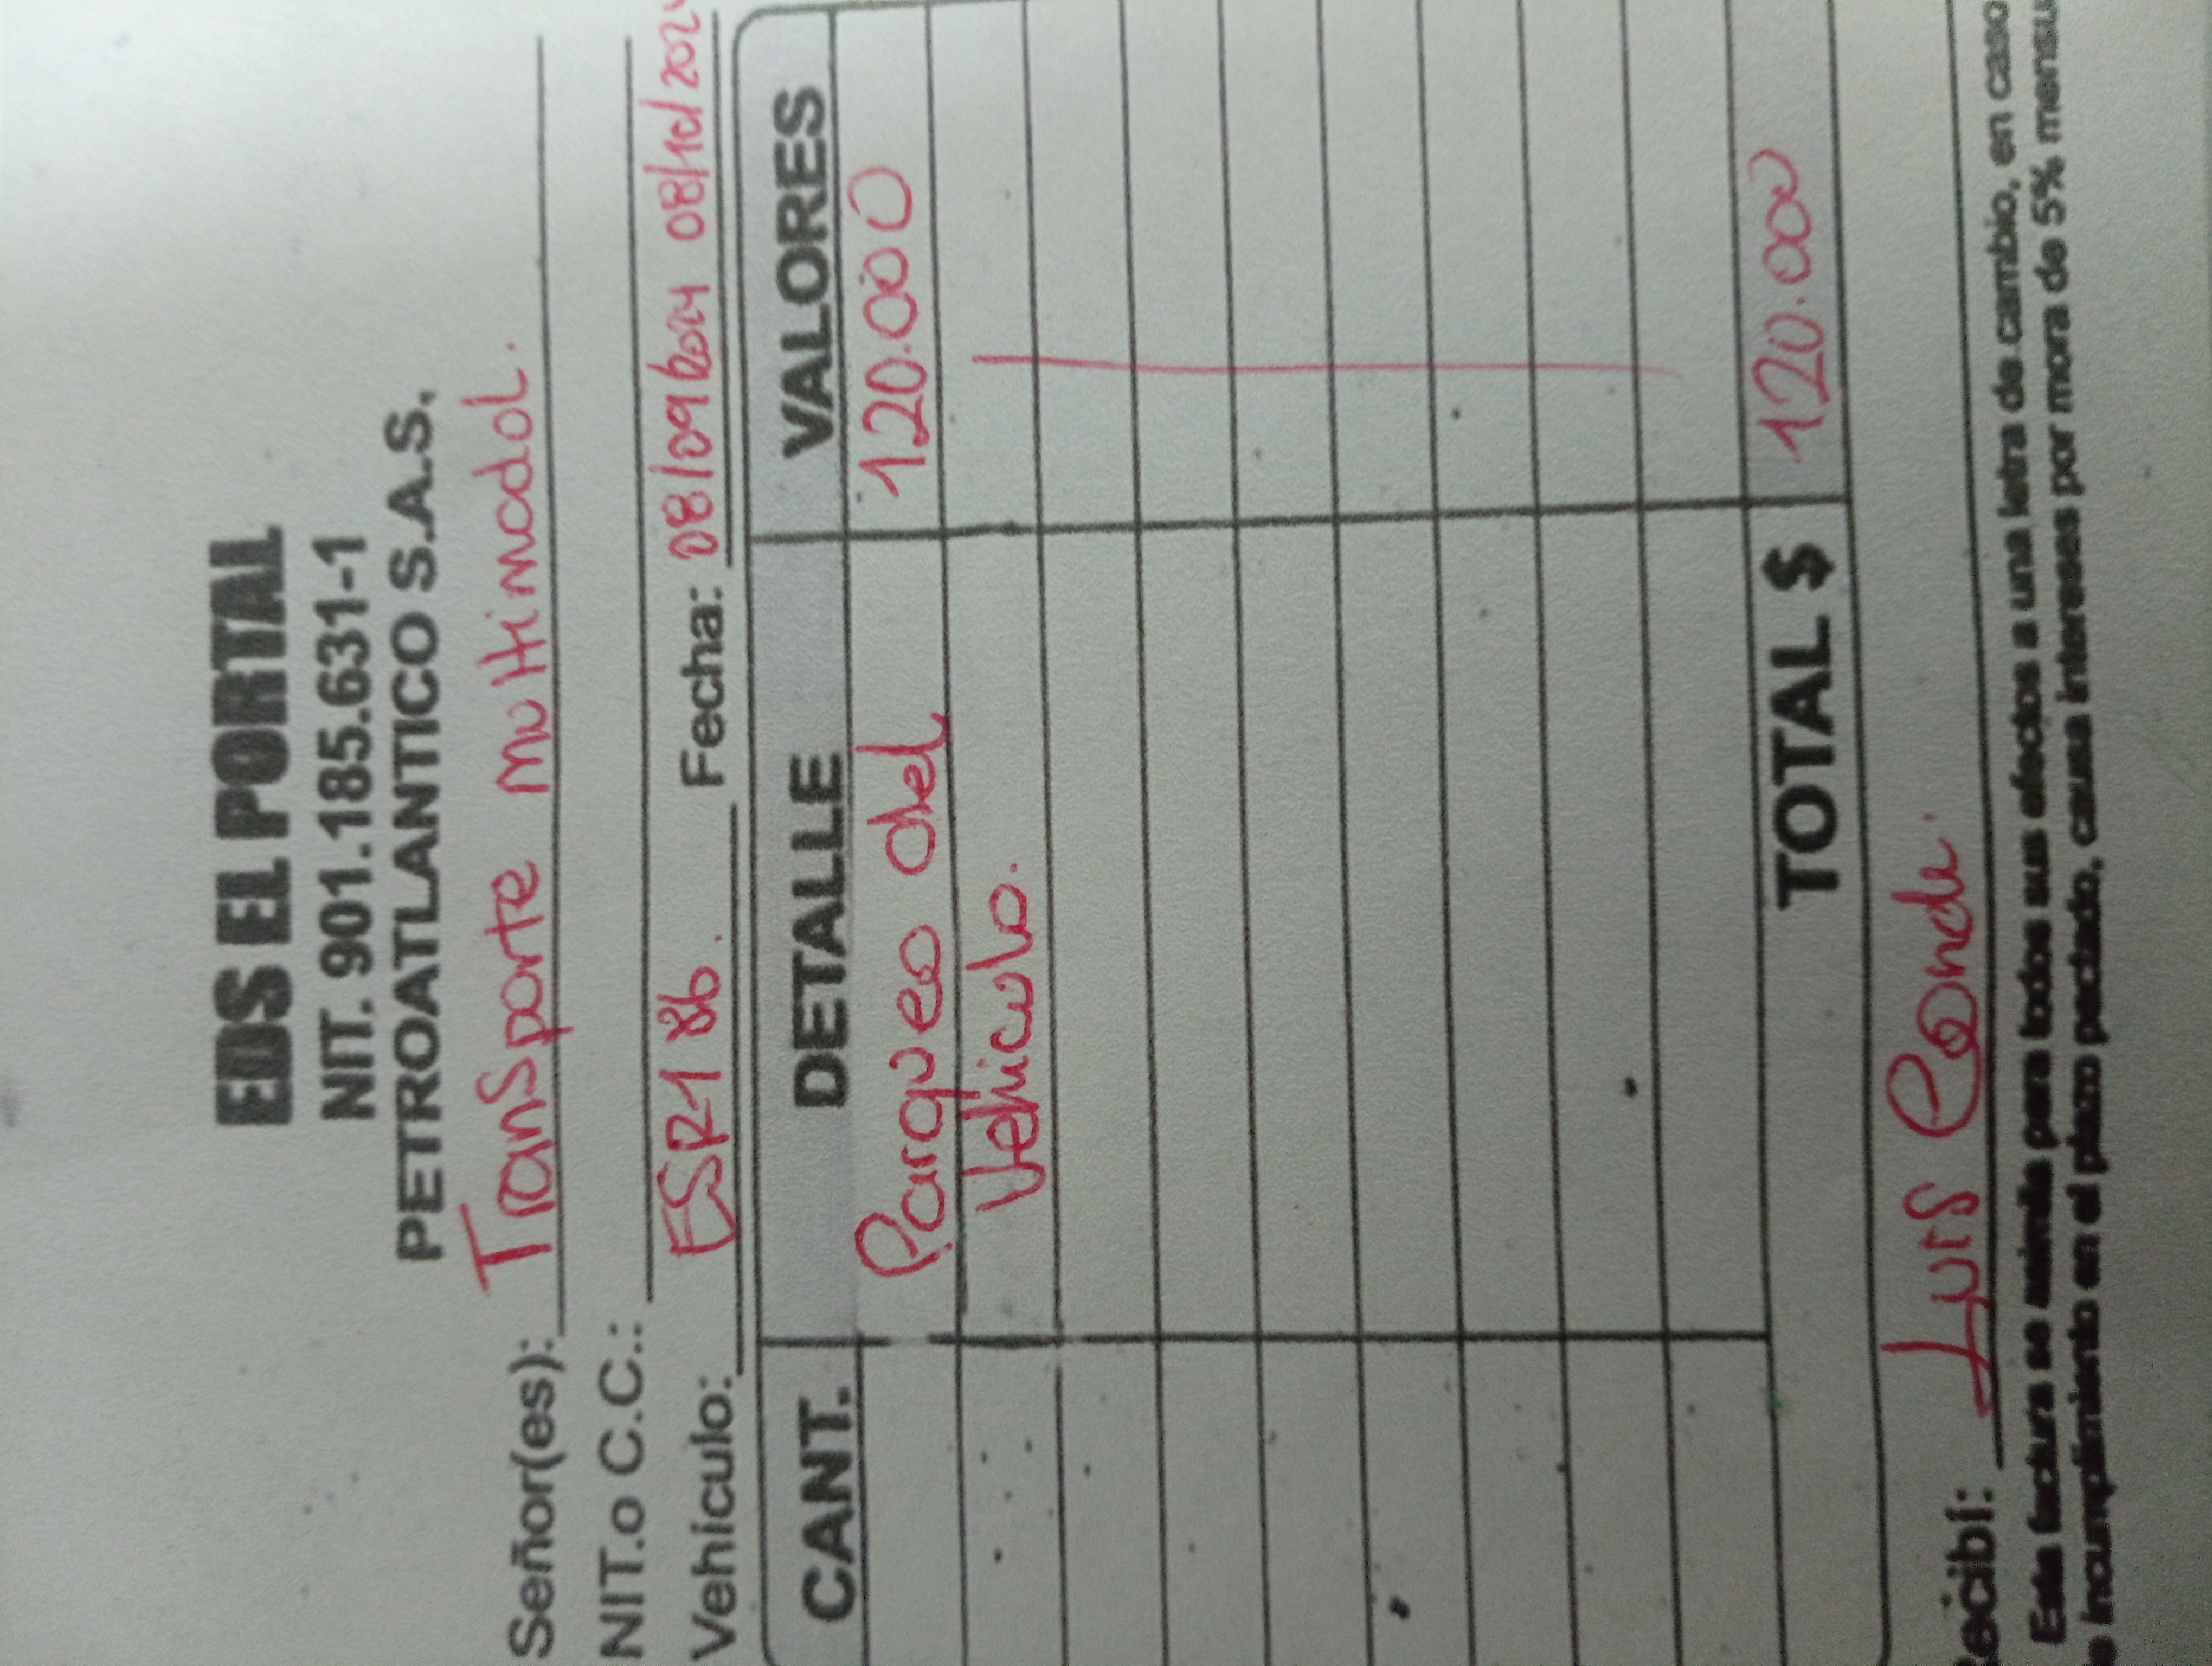 EDS EL PORTAL
NIT. 901.185.631-1
PETROATLANTICO S.A.S.
Señor(es): Transporte multimodal.
NIT.o C.C.:
Vehículo: ESR186. Fecha: 08/09/2024 08/10/2024
CANT. DETALLE VALORES
Parqueo del 120.000
Vehiculo.
TOTAL $ 120.000
Recibí: Luis Conde.
Esta factura se asimila para todos sus efectos a una letra de cambio, en caso
incumplimiento en el plazo pactado, causa intereses por mora de 5% mensu